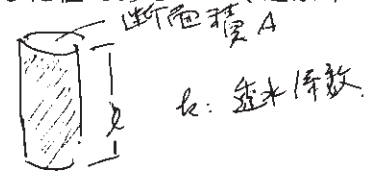 断面積 A
l
k: 透水係数